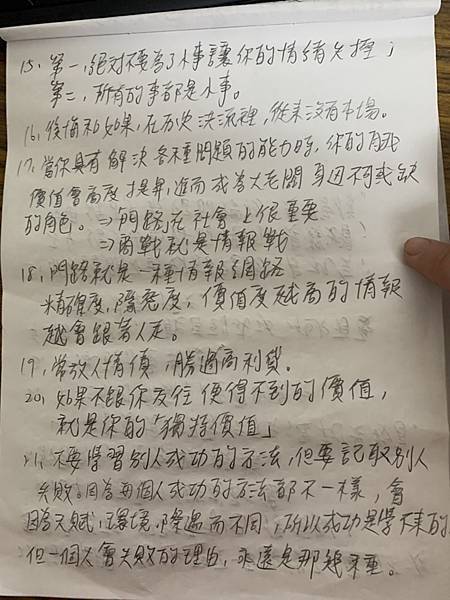 15、第一,絕對不要為了小事讓你的情緒失控;
第二,所有的事都是小事。
16、後悔和如果,在历史洪流裡,從來沒有市場。
17、當你具有解決各種問題的能力時,你的自我
價值會高度提昇,進而成為大老闆身边不可或缺
的角色。⇒門路在社會上很重要
⇒商戰就是情報戰
18、門路就是一種情報網絡
精確度,隱密度,價值度越高的情報
越會跟著人走。
19、常放人情債,勝過高利貸。
20、如果不跟你交往便得不到的價值,
就是你的「獨特價值」
21、不要學習別人成功的方法,但要記取別人
失敗。因為每個人成功的方法都不一樣,會
因為天賦,環境,際遇而不同,所以成功是學不來的
但一個人會失敗的理由,永遠是那幾種。